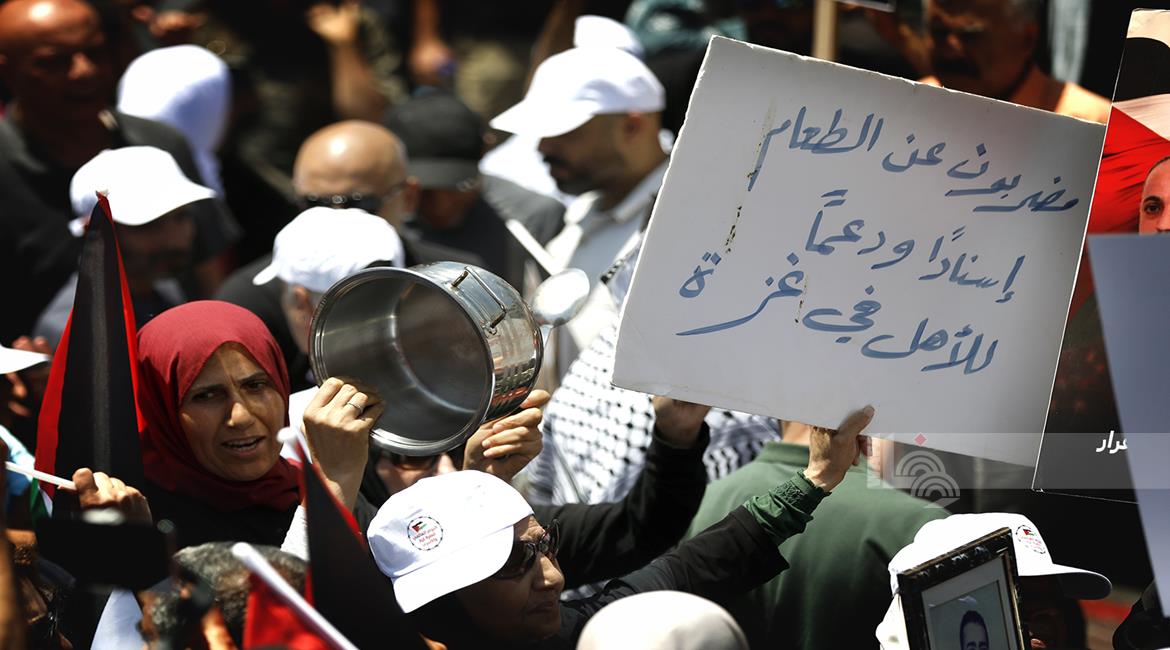 مضربون عن الطعام
إسنادًا ودعمًا
للأهل في غزة